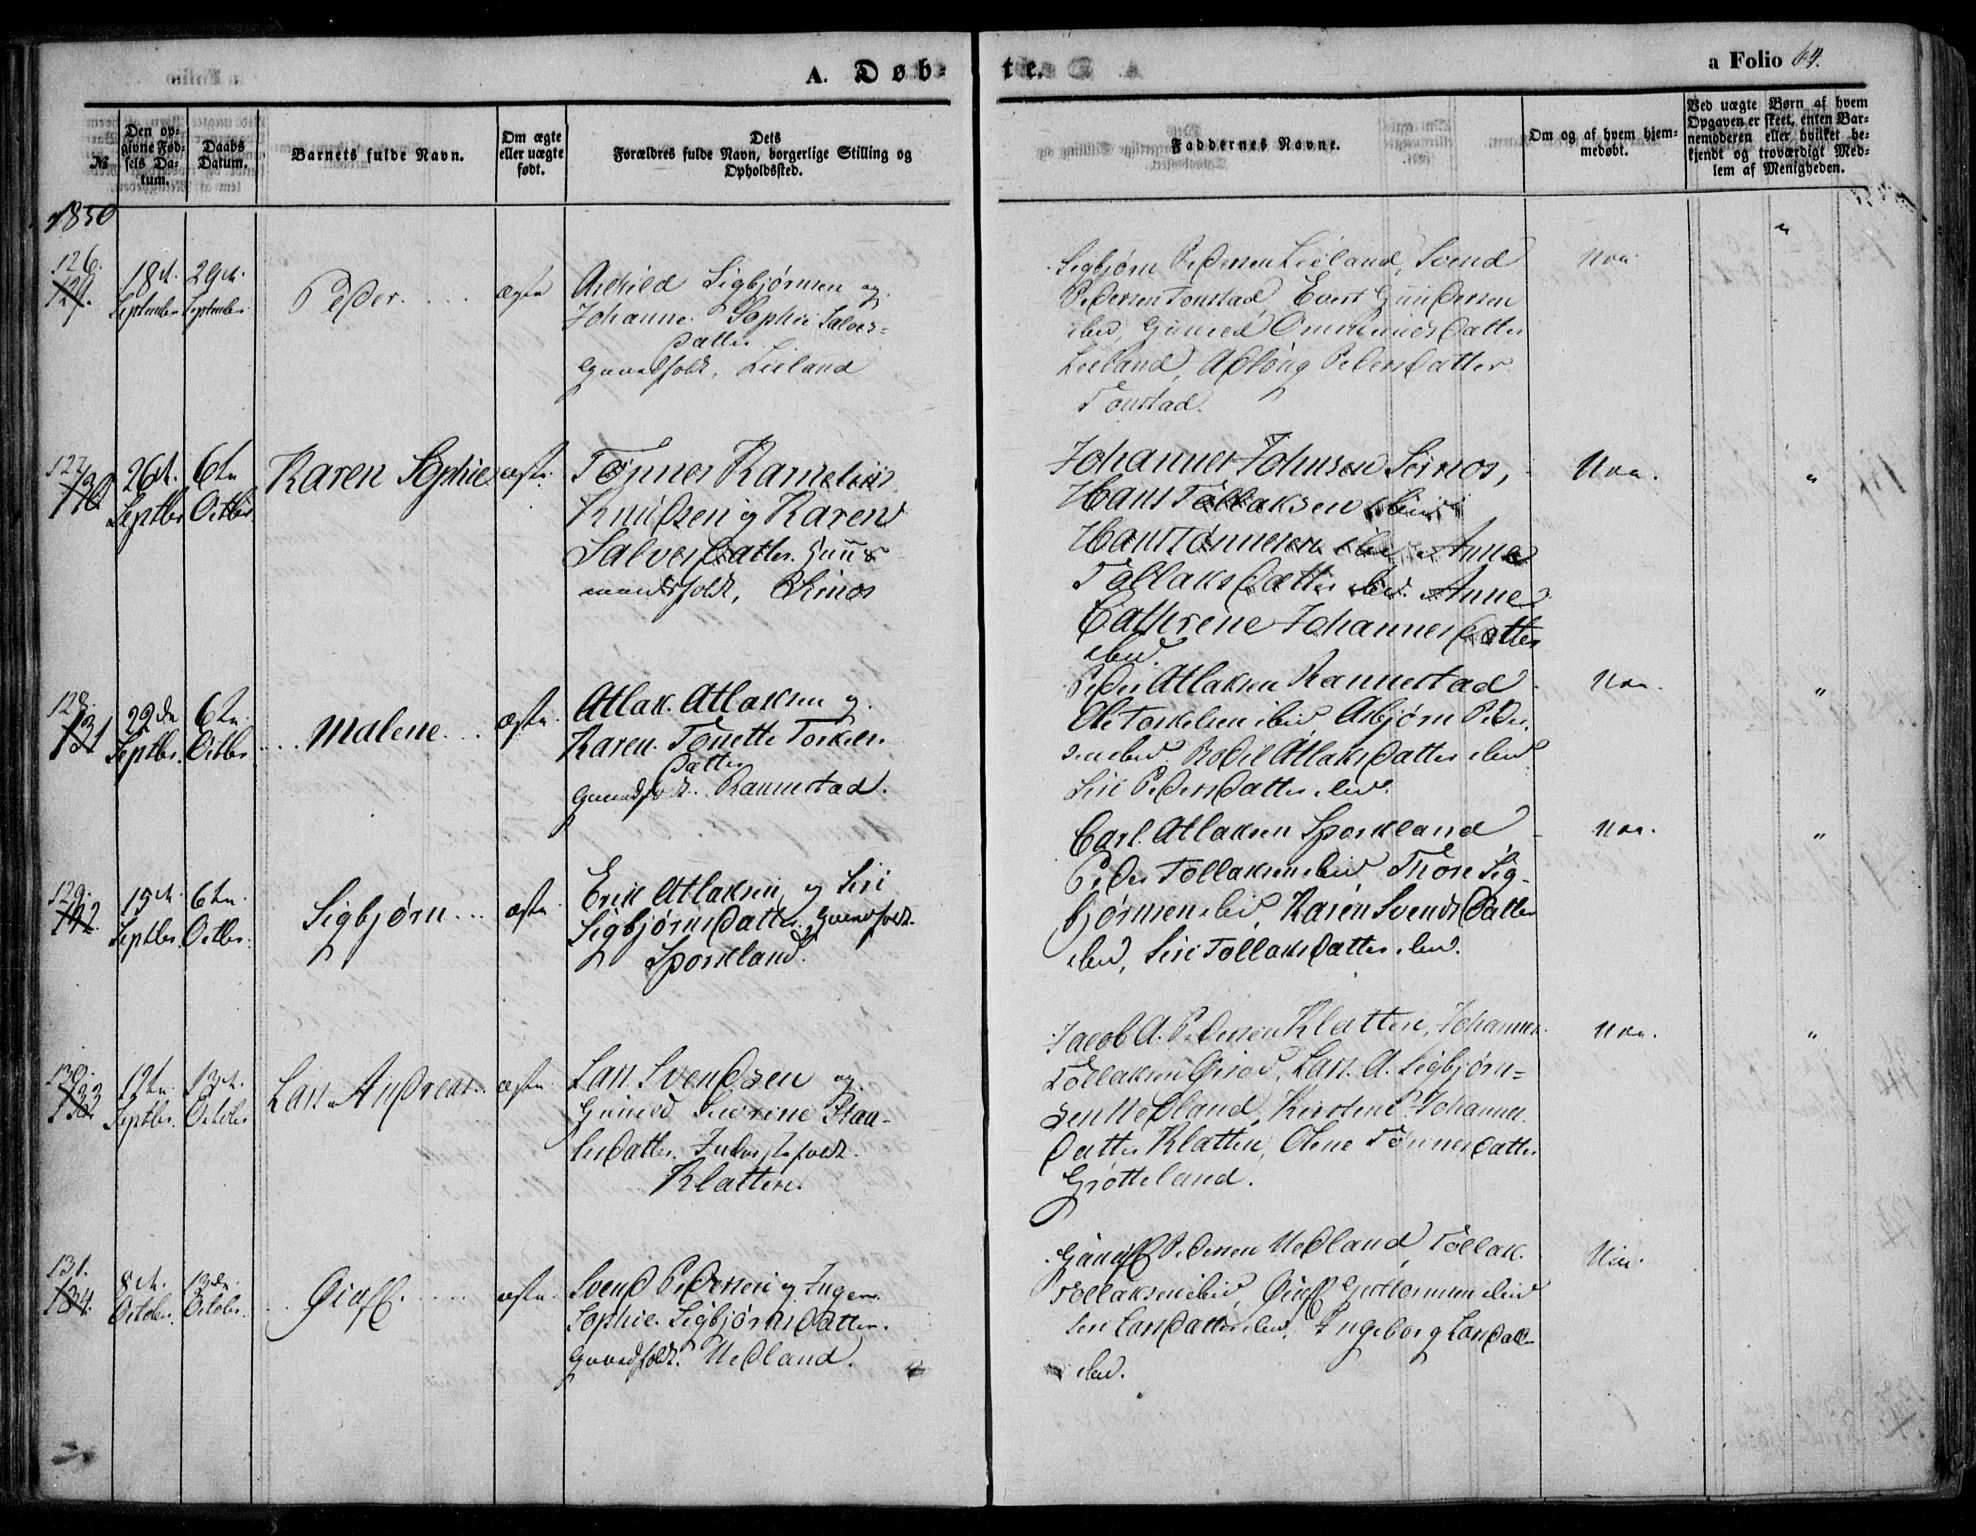 A. Døb-
te.
a Folio 64.
№
Den op-
givne Fød-
sels Da-
tum.
Daabs
Datum.
Barnets fulde Navn.
Om ægte
eller uægte
født.
Dets
Forældres fulde Navn, borgerlige Stilling og
Opholdssted.
Faddernes Navne.
Om og af hvem hjem-
medøbt.
Ved uægte Børn af hvem
Opgaven er skeet, enten Bar-
nemoderen eller hvilket be-
kjendt og troværdigt Med-
lem af Menigheden.
1850
126.
129.
18de
September
29de
September
Peder
ægte
Sigbjørnsen og
Johanne Sophie Salves-
datter
Gaardfolk, Lieland
Sigbjørn Pedersen Lieland, Svend
Pedersen Tonstad, Evert Gundersen
ibid, Ommundsdatter
Lieland, Pedersdatter
Tonstad.
127
130
26de
Septbr
6te
Octbr.
Karen Sophie
ægte
Tønnes Kornelius
Knudsen og Karen
Salvesdatter.
Sirnos
Johannes Johnsen Sirnos,
Hans Tollaksen ibid
Hans Tønnesen ibid Anne
Tollaksdatter ibid. Anne
Cathrine Johannesdatter
ibid.
128.
131
22de
Septbr.
6te
Octbr
Malene
ægte
Atlak Atlaksen og
Karen Tonette Torkels-
datter
Gaardfolk. Rannestad.
Peder Atlaksen Rannestad
Ole Torkelsen ibid Asbjørn Peder-
sen ibid, Bodil Atlaksdatter ibid
Siri Pedersdatter ibid.
129.
132
15de
Septbr.
6te
Octbr.
Sigbjørn
ægte
Erik Atlaksen og Siri
Sigbjørnsdatter. Gaardfolk.
Sporkland.
Carl Atlaksen Sporkland
Peder Tollaksen ibid Thore Sig-
bjørnsen ibid, Karen Svendsdatter
ibid, Siri Tollaksdatter ibid.
130.
133
12te
Septbr.
13de
October
Lars Andreas
ægte
Lars Svendsen og
Gunild Severine Staa-
lesdatter. Inderstefolk.
Klatten.
Jacob A. Pedersen Klatten, Johannes
Tollaksen Lars A. Sigbjørn-
sen Nedland, Kirstine Johannes
datter Klatten, Olene Tønnesdatter
Grøtteland.
131.
134.
8de
October.
13de
October.
ægte
Svend Pedersen og Inger
Sophie Sigbjørnsdatter.
Gaardfolk. Nedland.
Pedersen Nedland, Tollak
Tollaksen ibid, Guttormsen ibid
Siri Larsdatter ibid, Ingeborg Larsdatt-
ibid.